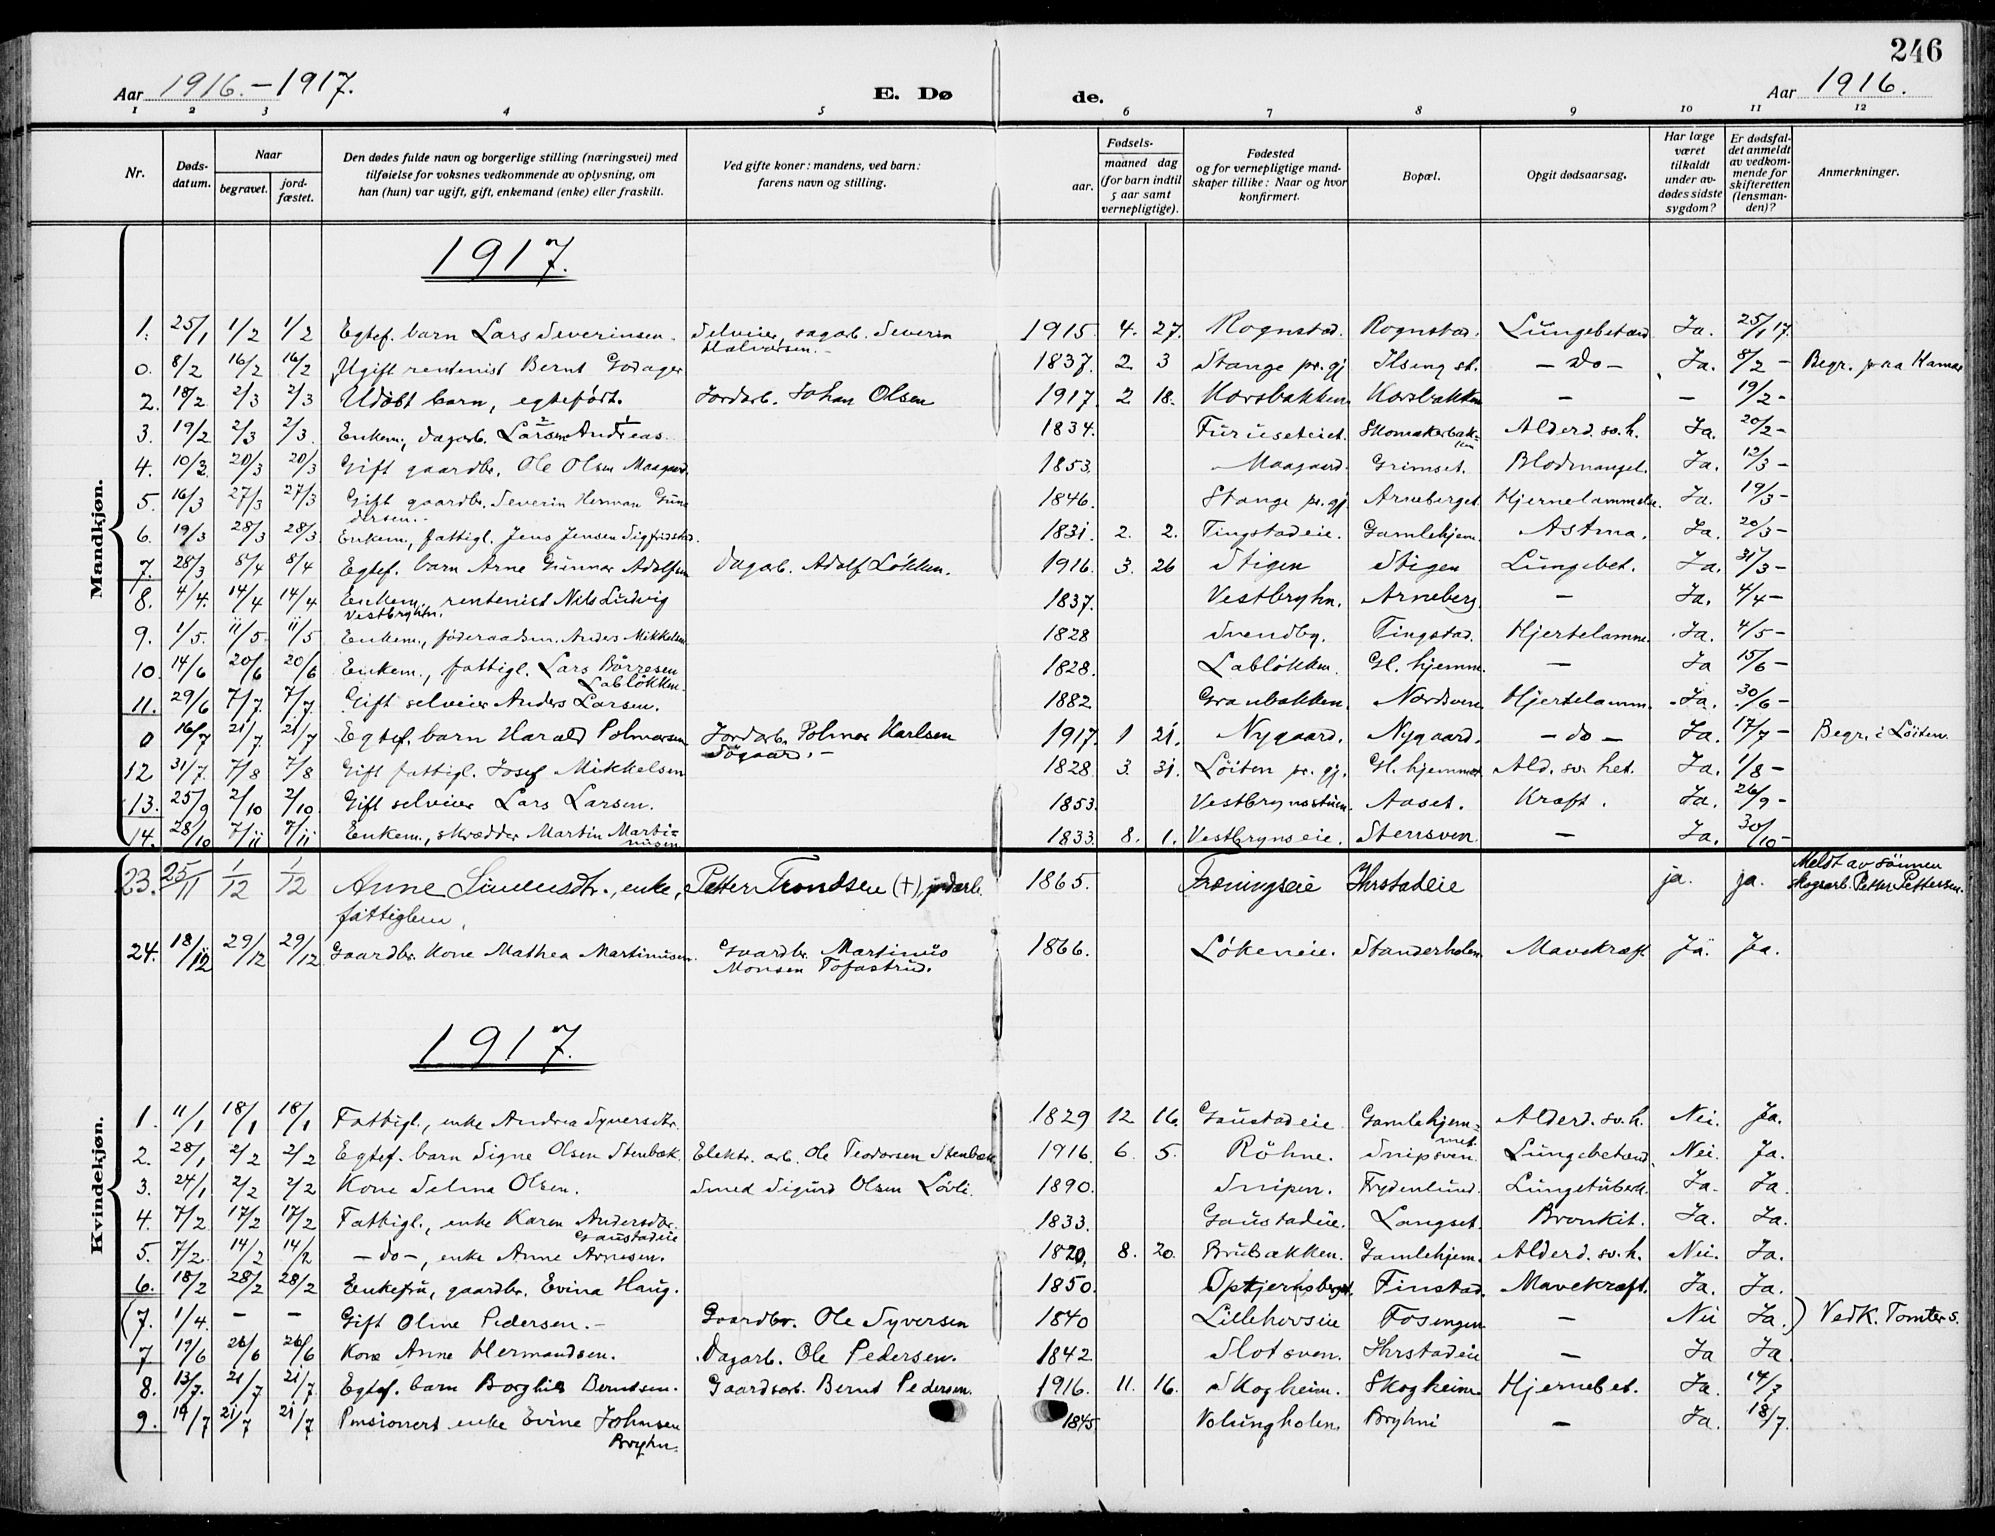 246
Aar 1916.–1917. E. Dø de. Aar 1916.
1 2 3 4 5 6 7 8 9 10 11 12
Nr. Døds-datum. Naar begravet. jord-fæstet. Den dødes fulde navn og borgerlige stilling (næringsvei) med tilføielse for voksnes vedkommende av oplysning, om han (hun) var ugift, gift, enkemand (enke) eller fraskilt. Ved gifte koner: mandens, ved barn: farens navn og stilling. Fødsels- aar. maaned dag (for barn indtil 5 aar samt vernepligtige). Fødested og for vernepligtige mandskaper tillike: Naar og hvor konfirmert. Bopæl. Opgit dødsaarsag. Har læge været tilkaldt under avdødes sidste sygdom? Er dødsfaldet anmeldt av vedkommende for skifteretten (lensmanden)? Anmerkninger.
Mandkjøn.
1917.
1. 25/1 1/2 1/2 Egtef. barn Lars Severinsen. Selveier, sagarb. Severin Halvorsen.– 1915. 4. 27. Rognstad. Rognstad. Lungebetænd. Ja. 25/1 17.
0. 8/2 16/2 16/2 Ugift rentenist Bernt Godager 1837. 2. 3 Stange pr.gj. Ilseng st. – do – Ja. 8/2 – Begr. paa Hamar
2. 18/2 2/3 2/3 Udøbt barn, egtefødt. Jordarb. Johan Olsen 1917. 2 18. Korsbakken. Korsbakken – – 19/2 –
3. 19/2 2/3 2/3. Enkem., dagarb. Larsen Andreas. 1834. Furuseteiet. Skomakerbakken Alderd.sv.h. Ja. 20/2 –
4. 10/3 20/3 20/3 Gift gaardbr. Ole Olsen Maagaard. 1853. Maagaard. Grimset. Blodmangel. Ja. 12/3 –
5. 16/3 27/3 27/3 Gift gaardbr. Severin Herman Gundersen.. 1846. Stange pr.gj. Arneberget. Hjernelammelse. Ja. 19/3 –
6. 19/3 28/3 28/3 Enkem., fattigl. Jens Jensen Sigfridstad. 1831. 2. 2. Tingstadeie. Gamlehjem. Astma. Ja. 20/3 –
7. 28/3 8/4 8/4 Egtef. barn Arne Gunnar Adolfsen Dagarb. Adolf Løkken. 1916. 3. 26 Stigen Stigen Lungebet. Ja. 31/3 –
8. 4/4. 14/4 14/4 Enkem., rentenist Nils Ludvig Vestbryhn. 1837. Vestbryhn. Arneberg. – Ja. 4/4 –
9. 1/5. 11/5. 11/5 Enkem., føderaadsm. Anders Mikkelsen 1828 Svendby. Tingstad. Hjertelamme. Ja. 4/5 –
10. 14/6 20/6 20/6 Enkem., fattigl. Lars Børresen Labløkken. 1828. Labløkken. Gl. hjemm. – Ja 15/6 –
11. 29/6 7/7. 7/7. Gift selveier Anders Larsen. 1882 Granbakken. Nordsven. Hjertelamm. Ja. 30/6 –
0 16/7 21/7. 21/7 Egtef. barn Harald Polmarsen Jordarb. Polmar Karlsen Søgaard.– 1917. 1 21. Nygaard. Nygaard. – do – Ja. 17/7 – Begr. i Löiten.
12 31/7. 7/8 7/8 Gift fattigl. Josef Mikkelsen 1828. 3. 31. Löiten pr. gj. Gl. hjemmet Ald.sv.het. Ja. 1/8 –
13. 25/9 2/10 2/10. Gift selveier Lars Larsen. 1853. Vestbrynsstuen. Aaset. Kræft. Ja. 26/9 –
14. 28/10 7/11 7/11 Enkem., skrædder Martin Martinusen 1833. 8. 1. Vestbrynseie. Stensven. – Ja. 30/10 –
Kvindekjøn.
23. 25/11 1/12 1/12 Anne Simensdtr., enke, fattiglem. Petter Trondsen (+), jordarb. 1865. Fræningseie Ihrstadeie ja. ja. Meldt av sönnen skogsarb. Petter Pettersen.
24. 18/12 29/12 29/12 Gaardbr. kone Mathea Martinusen. Gaardbr. Martinus Monsen Tofastrud. 1866. Løkeneie. Standerholen. Mavekræft. Ja. Ja.
1917.
1. 11/1 18/1 18/1 Fattigl., enke Andrea Syversdtr. 1829 12 16. Gaustadeie Gamlehjemmet. Alderd.sv.h. Nei. Ja.
2. 28/1 2/2 2/2 Egtef. barn Signe Olsen Stenbæk. Elektr. arb. Ole Teodorsen Stenbæk 1916. 6. 5. Röhne. Snipsven. Lungebetænd. Nei. Ja.
3. 24/1 2/2 2/2 Kone Selma Olsen. Smed Sigurd Olsen Løvli. 1890. Snipen. Frydenlund. Lungetuberk. Ja. Ja.
4. 7/2. 17/2 17/2 Fattigl., enke Karen Andersdtr. Gaustadeie 1833. Gaustadeie. Langset. Bronkit. Ja. Ja.
5. 7/2. 14/2 14/2 – do –, enke Anne Arnesen. 1820. 8. 20. Brubakken. Gamlehjem. Alderd.sv.h. Nei. Ja.
6. 18/2 28/2 28/2 Enkefru, gaardbr. Evina Haug. 1850. Finstad. Mavekræft. Ja. Ja.
(7. 1/4. – – Gift Oline Pedersen. – Gaardbr. Ole Syversen 1840 Lillehovseie Fosengen – Nei Ja.) Vedk. Tomter s.
7 19/6 26/6 26/6 Kone Anne Hermandsen. Dagarb. Ole Pedersen. 1842. Slotsven. Ihrstadeie – Ja Ja.
8. 13/7. 21/7 21/7. Egtef. barn Borghild Berntsen. Gaardsarb. Bernt Pedersen. 1916. 11. 16. Skogheim. Skogheim. Hjernebet. Ja. 14/7
9. 14/7 21/7 21/7 Pensionert enke Evine Johnsen Bryhn. 1845. Volungholen. Bryhni – Ja. 18/7.